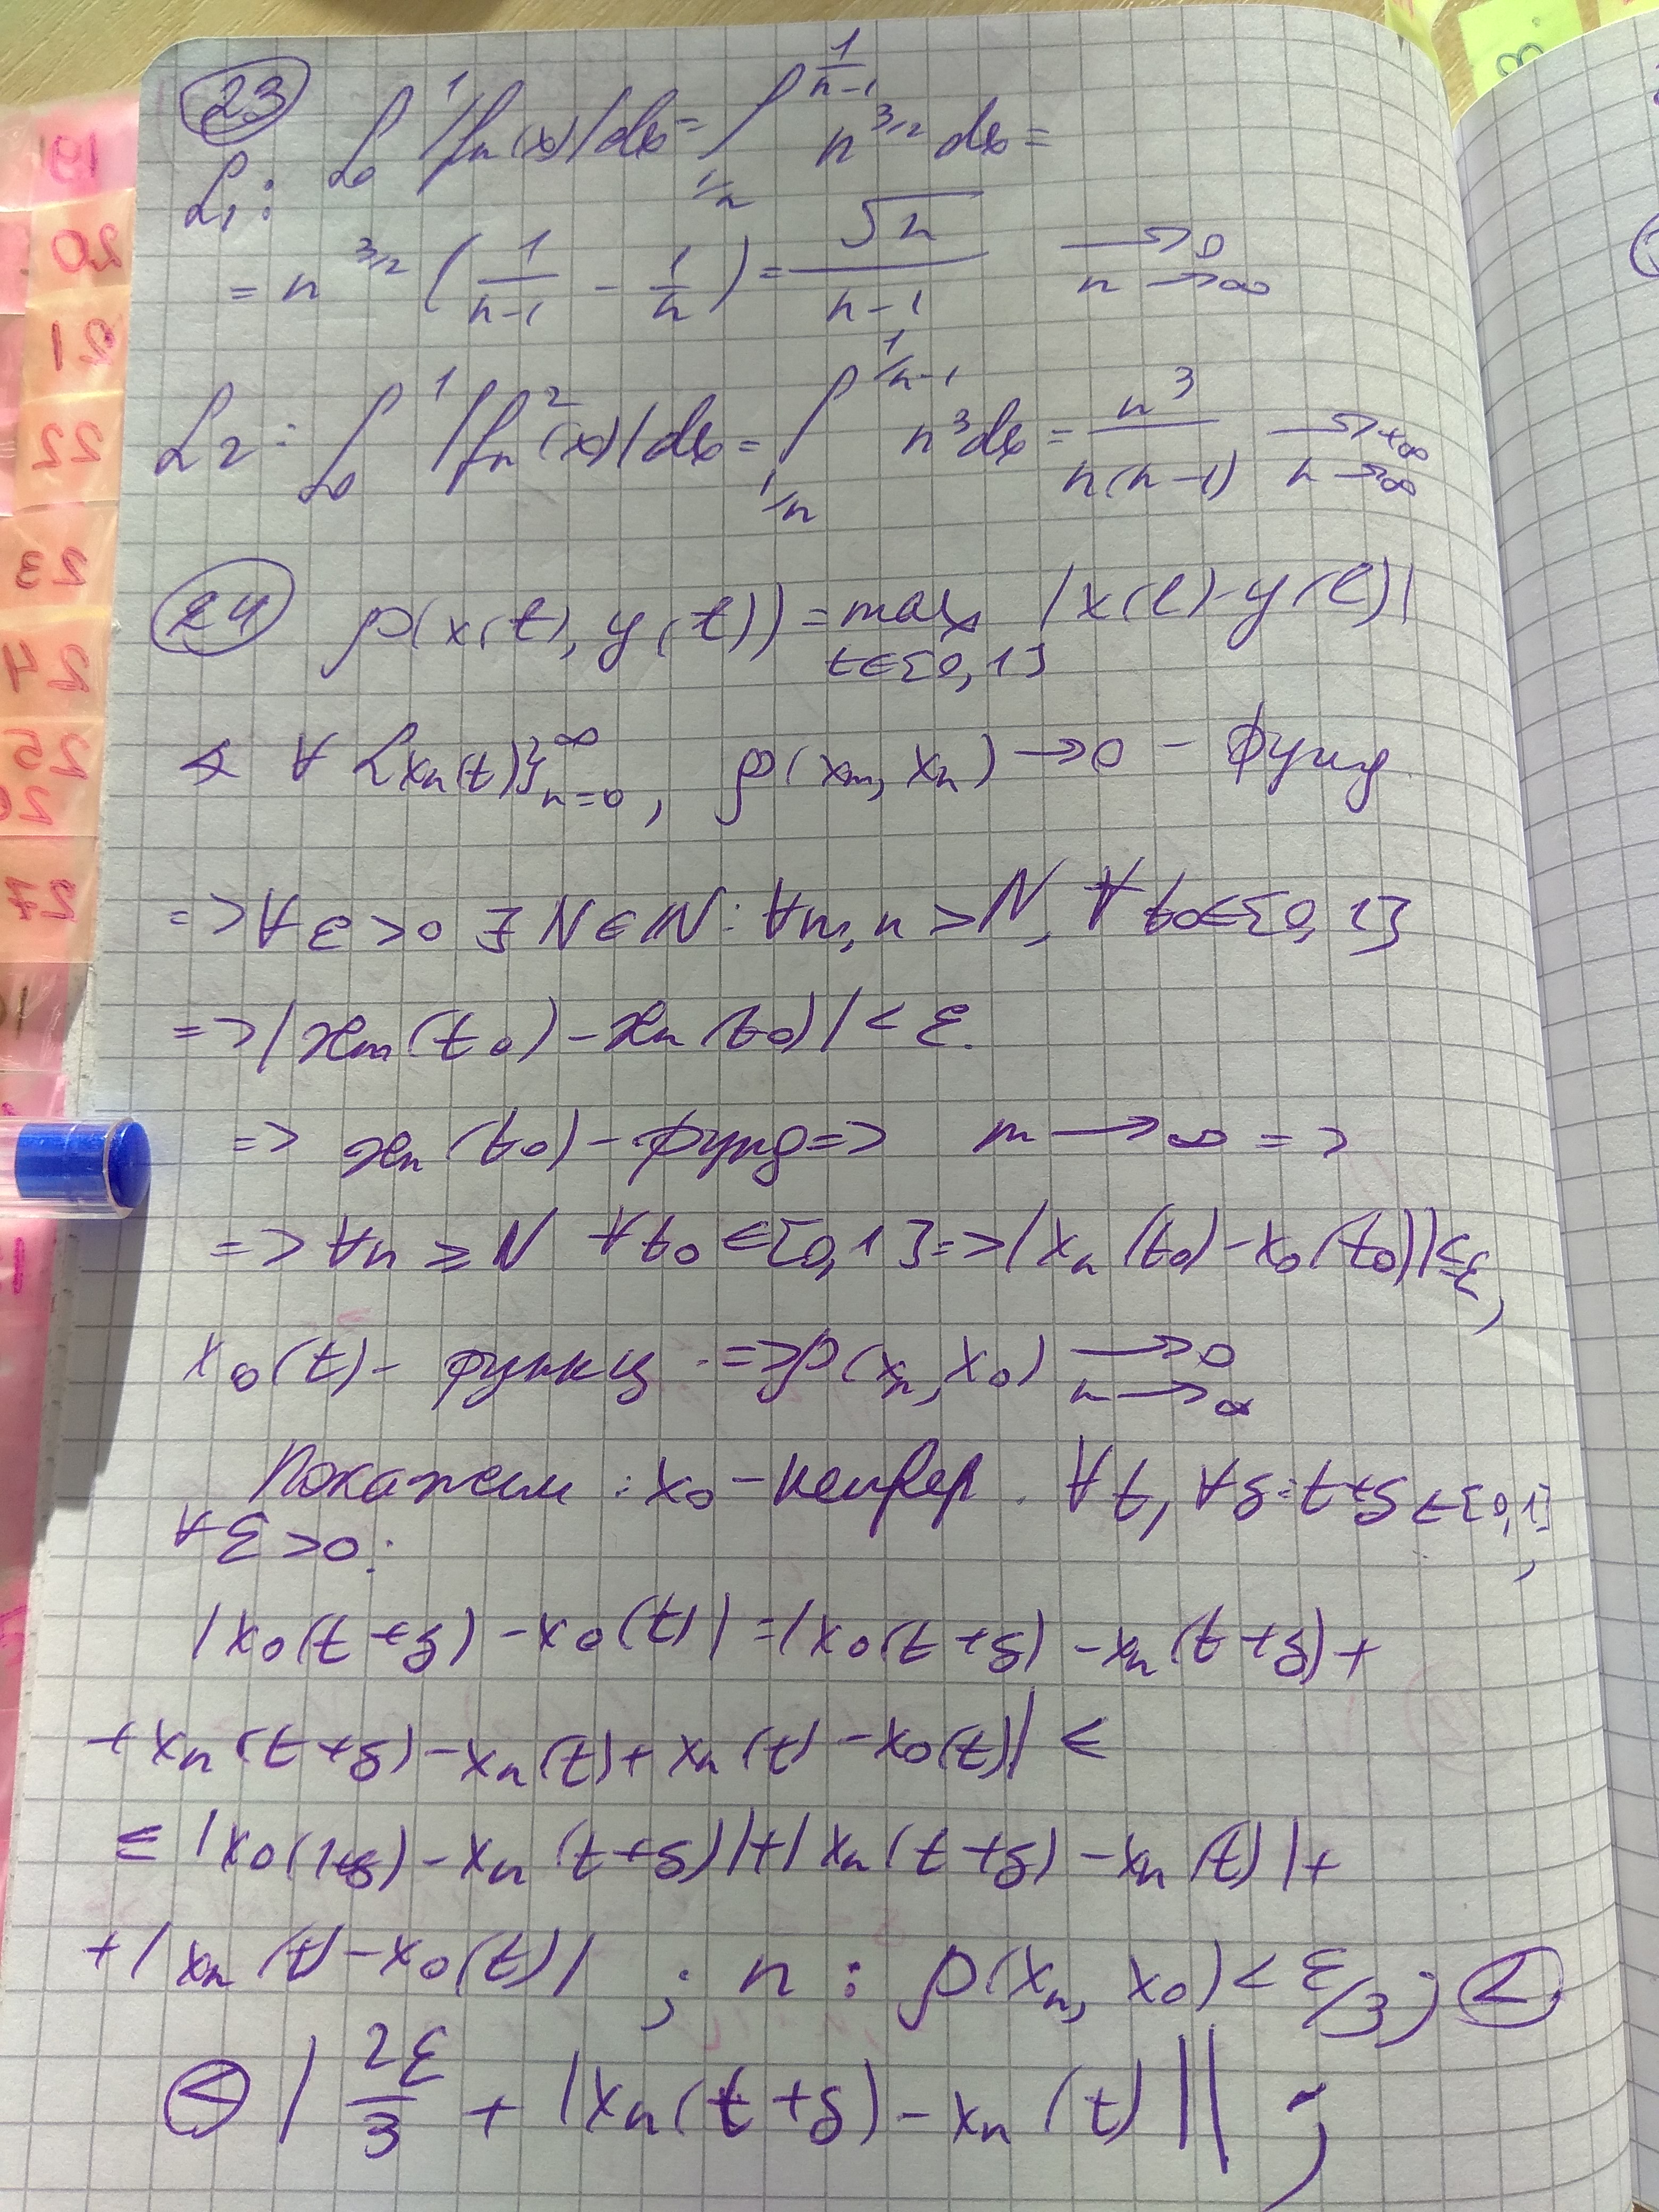 23
L₁: ∫₀¹ |fₙ(x)|dx = ∫_{1/n}^{1/(n-1)} n^{3/2} dx =
= n^{3/2} (1/(n-1) - 1/n) = √n/(n-1) →0 n→∞
L₂: ∫₀¹ |fₙ²(x)|dx = ∫_{1/n}^{1/(n-1)} n³dx = n³/(n(n-1)) →+∞ n→∞
24 ρ(x(t), y(t)) = max_{t∈[0,1]} |x(t)-y(t)|
∢ ∀ {xₙ(t)}_{n=0}^∞, ρ(xₘ, xₙ) → 0 - фунд.
=> ∀ε>0 ∃N∈ℕ: ∀m,n>N, ∀t₀∈[0,1]
=> |xₘ(t₀) - xₙ(t₀)| < ε.
=> xₙ(t₀) - фунд => m→∞ =>
=> ∀n≥N ∀t₀∈[0,1] => |xₙ(t₀)-x₀(t₀)|≤ε,
x₀(t) - функц => ρ(xₙ, x₀) →0 n→∞
Покажем: x₀ - непрер. ∀t, ∀δ: t+δ∈[0,1],
∀ε>0:
|x₀(t+δ) - x₀(t)| = |x₀(t+δ) - xₙ(t+δ) +
+ xₙ(t+δ) - xₙ(t) + xₙ(t) - x₀(t)| ≤
≤ |x₀(t+δ) - xₙ(t+δ)| + |xₙ(t+δ) - xₙ(t)| +
+ |xₙ(t) - x₀(t)| ; n : ρ(xₙ, x₀) < ε/3; <
< | 2ε/3 + |xₙ(t+δ) - xₙ(t)|| ;
19
20
21
22
23
24
25
27
8